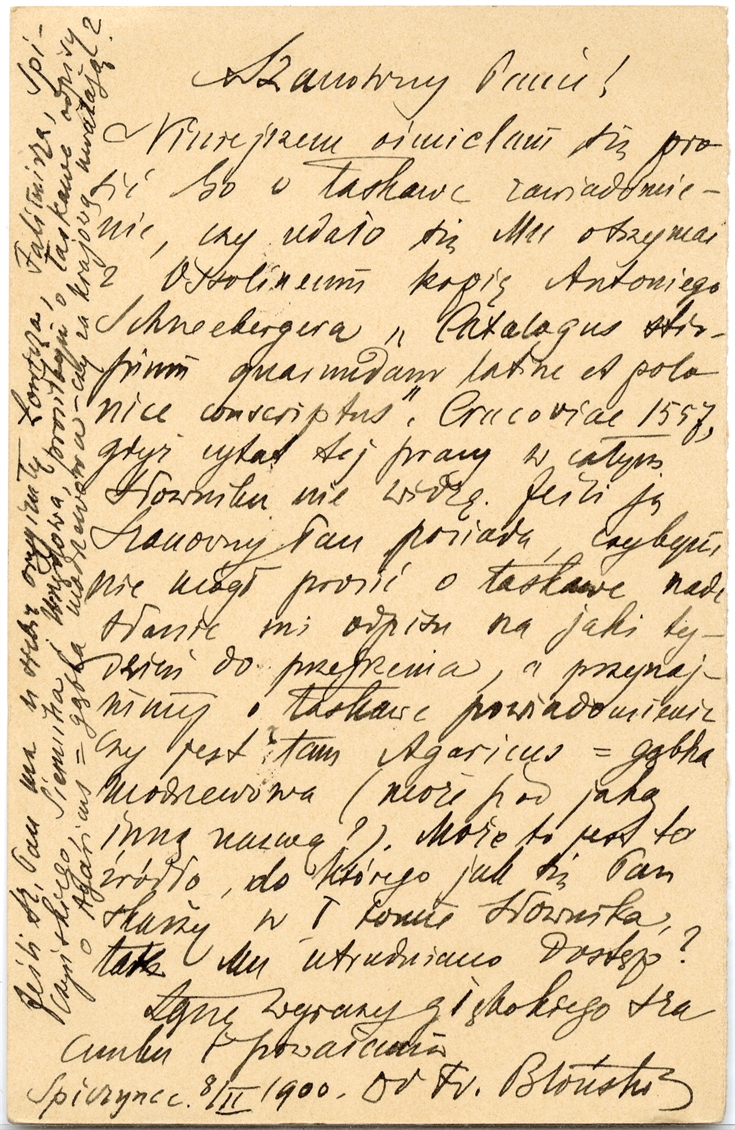 Szanowny Panie!
Niniejszem ośmielam się pro-
sić Go o łaskawe zawiadomie-
nie, czy udało się Mu otrzymać
z Ossolineum kopią Antoniego
Schneebergera „Catalogus stir-
pium quarumdam latine et polo
nice conscriptus". Cracoviae 1557,
gdyż cytat tej pracy w całym
Słowniku nie widzą. Jeśli ją
Szanowny Pan posiada, czybym
nie mógł prosić o łaskawe nade
słanie mi odpisu na jaki ty-
dzień do przejrzenia, a przynaj-
mniej o łaskawe powiadomienie
czy jest tam Agaricus = gąbka
modrzewiowa (może pod jaką
inną nazwą?). Może to jest to
źródło, do którego jak się Pan
skarży w I tomie Słownika,
tak Mu utrudniano dostęp?
Łączę wyrazy głębokiego sza
cunku i poważania
Spiczyńce. 8/II 1900. Dr Fr. Błoński
Jeśli Sz. Pan ma u siebie oryginały Łonicza, Falimirza, Spi-
czyńskiego, Siennika i Urzędowa, prosiłbym o łaskawe odpisy
o Agaricus = gąbka modrzewiowa – czy za krajową uważają?